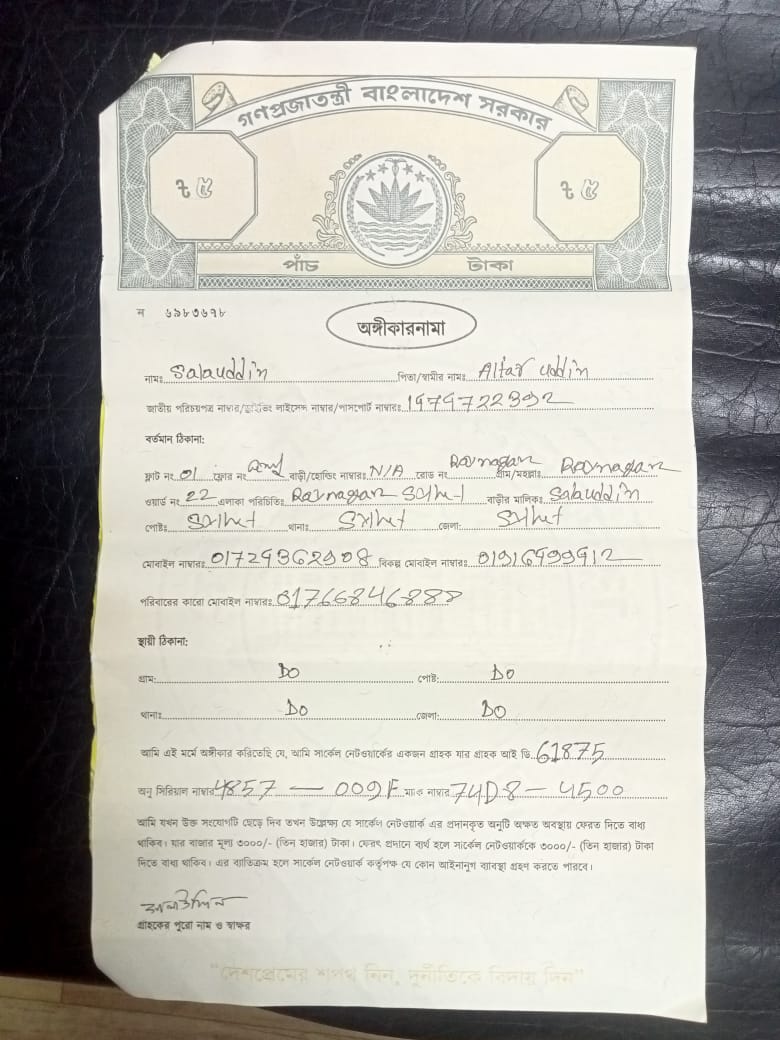 গণপ্রজাতন্ত্রী বাংলাদেশ সরকার
৳ ৫ ৳ ৫
পাঁচ টাকা
ন ৬৯৮৩৬৭৮
অঙ্গীকারনামা
নামঃ Salauddin পিতা/স্বামীর নামঃ Altaf uddin
জাতীয় পরিচয়পত্র নাম্বার/ড্রাইভিং লাইসেন্স নাম্বার/পাসপোর্ট নাম্বারঃ
বর্তমান ঠিকানা:
ফ্লাট নং 01 ফ্লোর নং বাড়ী/হোল্ডিং নাম্বারঃ N/A রোড নং Raynagar গ্রাম/মহল্লাঃ Raynagar
ওয়ার্ড নং 22 এলাকা পরিচিতিঃ Raynagar Sylhet বাড়ীর মালিকঃ Salauddin
পোষ্টঃ Sylhet থানাঃ Sylhet জেলা: Sylhet
মোবাইল নাম্বারঃ বিকল্প মোবাইল নাম্বারঃ
পরিবারের কারো মোবাইল নাম্বারঃ 01766846888
স্থায়ী ঠিকানা:
গ্রাম: DO পোষ্ট: DO
থানাঃ DO জেলা: DO
আমি এই মর্মে অঙ্গীকার করিতেছি যে, আমি সার্কেল নেটওয়ার্কের একজন গ্রাহক যার গ্রাহক আই ডি 61875
অনু সিরিয়াল নাম্বার 4857 — 009F ম্যাক নাম্বার 74D8 — 4500
আমি যখন উক্ত সংযোগটি ছেড়ে দিব তখন উল্লেখ্য যে সার্কেল নেটওয়ার্ক এর প্রদানকৃত অনুটি অক্ষত অবস্থায় ফেরত দিতে বাধ্য
থাকিব। যার বাজার মূল্য ৩০০০/- (তিন হাজার) টাকা। ফেরৎ প্রদানে ব্যর্থ হলে সার্কেল নেটওয়ার্ককে ৩০০০/- (তিন হাজার) টাকা
দিতে বাধ্য থাকিব। এর ব্যতিক্রম হলে সার্কেল নেটওয়ার্ক কর্তৃপক্ষ যে কোন আইনানুগ ব্যবস্থা গ্রহণ করতে পারবে।
গ্রাহকের পুরো নাম ও স্বাক্ষর
"দেশপ্রেমের শপথ নিন, দুর্নীতিকে বিদায় দিন"